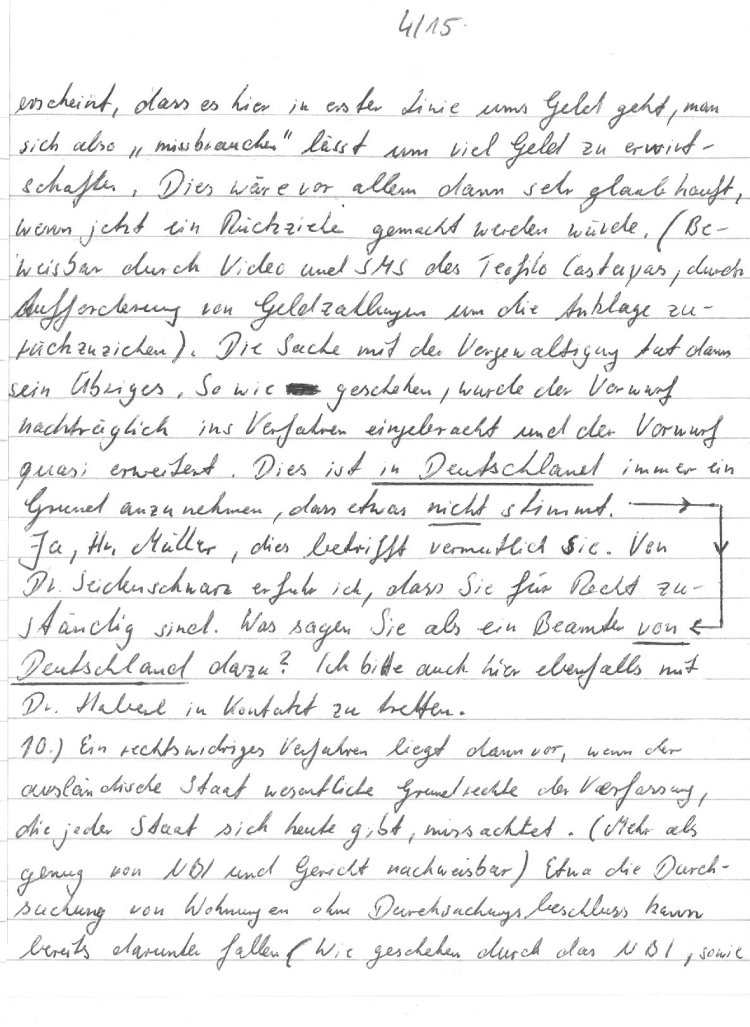 4/15.
erscheint, dass es hier in erster Linie ums Geld geht, man
sich also „missbrauchen" lässt um viel Geld zu erwirt-
schaften. Dies wäre vor allem dann sehr glaubhauft,
wenn jetzt ein Rückzieher gemacht werden würde. (Be-
weisbar durch Video und SMS des Teofilo Castapas, durch
Aufforderung von Geldzahlungen um die Anklage zu-
rückzuziehen). Die Sache mit der Vergewaltigung tat dann
sein Übriges. So wie geschehen, wurde der Vorwurf
nachträglich ins Verfahren eingebracht und der Vorwurf
quasi erweitert. Dies ist in Deutschland immer ein
Grund anzunehmen, dass etwas nicht stimmt.
Ja, Hr. Müller, dies betrifft vermutlich sie. Von
Dr. Seidenschwarz erfuhr ich, dass Sie für Recht zu-
ständig sind. Was sagen Sie als ein Beamter von
Deutschland dazu? Ich bitte auch hier ebenfalls mit
Dr. in Kontakt zu tretten.
10.) Ein rechtswidriges Verfahren liegt dann vor, wenn der
ausländische Staat wesentliche Grundrechte der Verfassung,
die jeder Staat sich heute gibt, missachtet. (Mehr als
genug von NBI und Gericht nachweisbar) Etwa die Durch-
suchung von Wohnungen ohne Durchsuchungsbeschluss kann
bereits darunter fallen (Wie geschehen durch das NBI, sowie